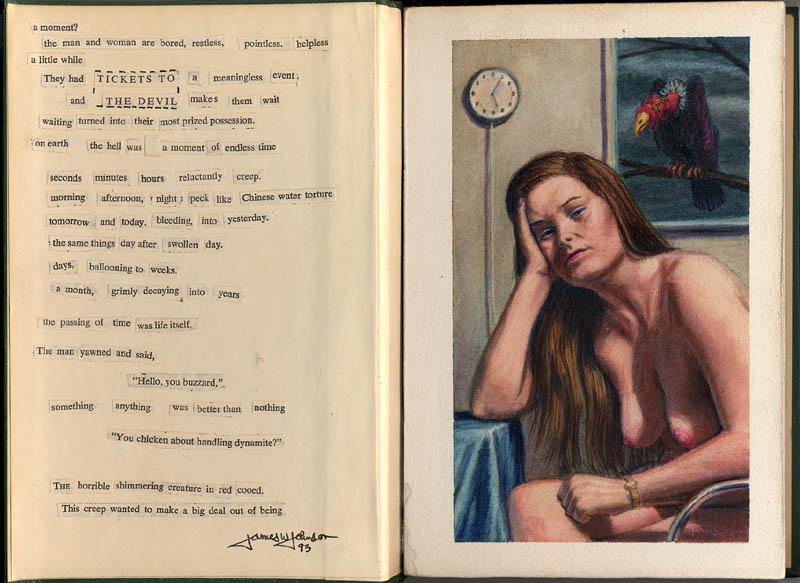 a moment?
the man and woman are bored, restless, pointless. helpless
a little while
They had TICKETS TO a meaningless event,
and THE DEVIL makes them wait
waiting turned into their most prized possession.
on earth the hell was a moment of endless time
seconds minutes hours reluctantly creep.
morning afternoon, night peck like Chinese water torture
tomorrow and today. bleeding, into yesterday.
the same things day after swollen day.
days, ballooning to weeks.
a month, grimly decaying into years
the passing of time was life itself.
The man yawned and said,
"Hello, you buzzard,"
something anything was better than nothing
"You chicken about handling dynamite?"
THE horrible shimmering creature in red cooed.
This creep wanted to make a big deal out of being
James W Johnson
93